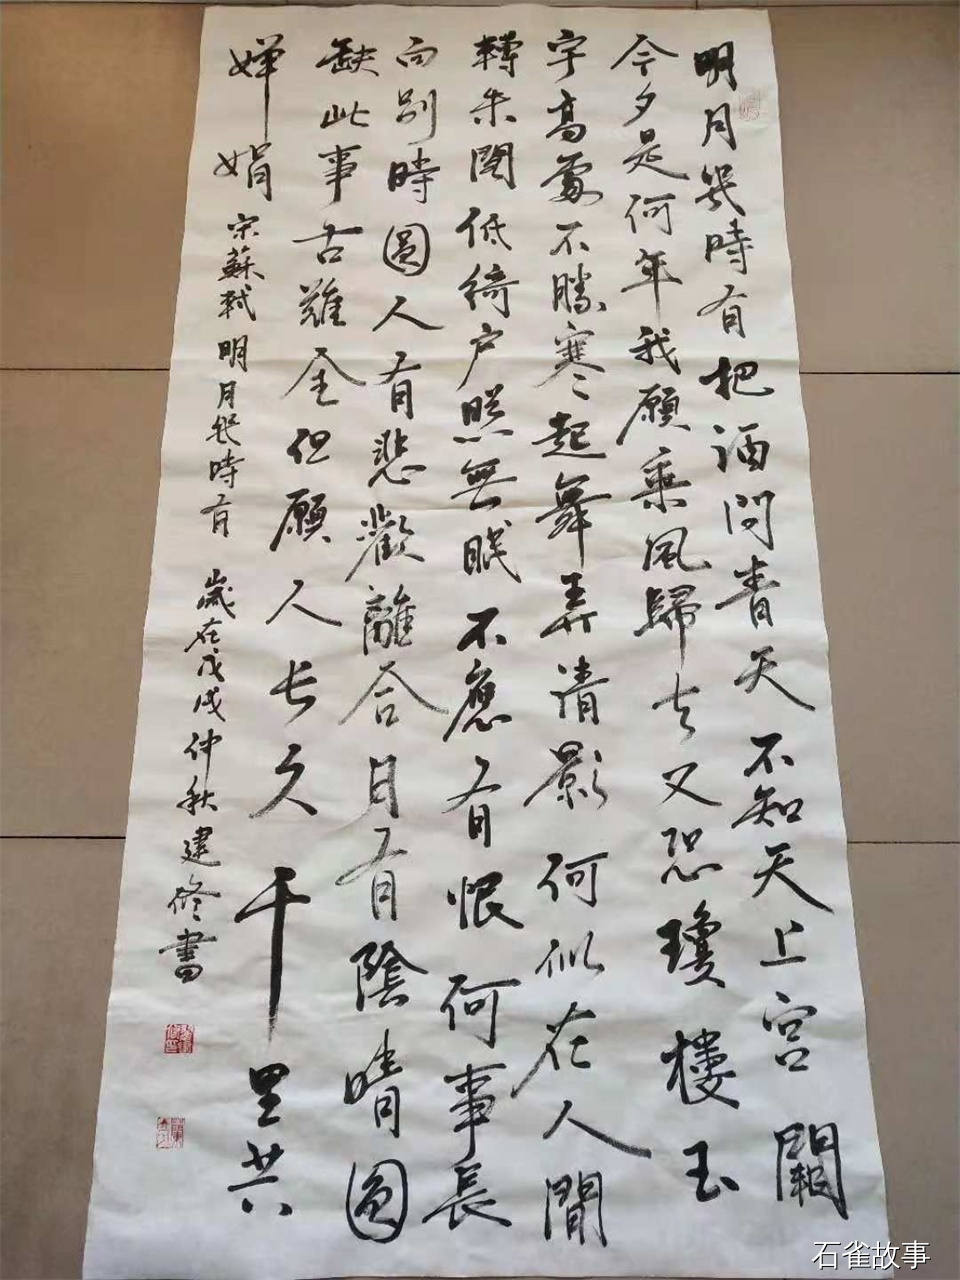 明月幾時有把酒問青天不知天上宮闕
今夕是何年我願乘風歸去又恐瓊樓玉
宇高處不勝寒起舞弄清影何似在人間
轉朱閣低綺户照無眠不應有恨何事長
向別時圓人有悲歡離合月有陰晴圓
缺此事古難全但願人長久千里共
嬋娟 宋蘇軾明月幾時有 歲在戊戌仲秋建修書
石雀故事